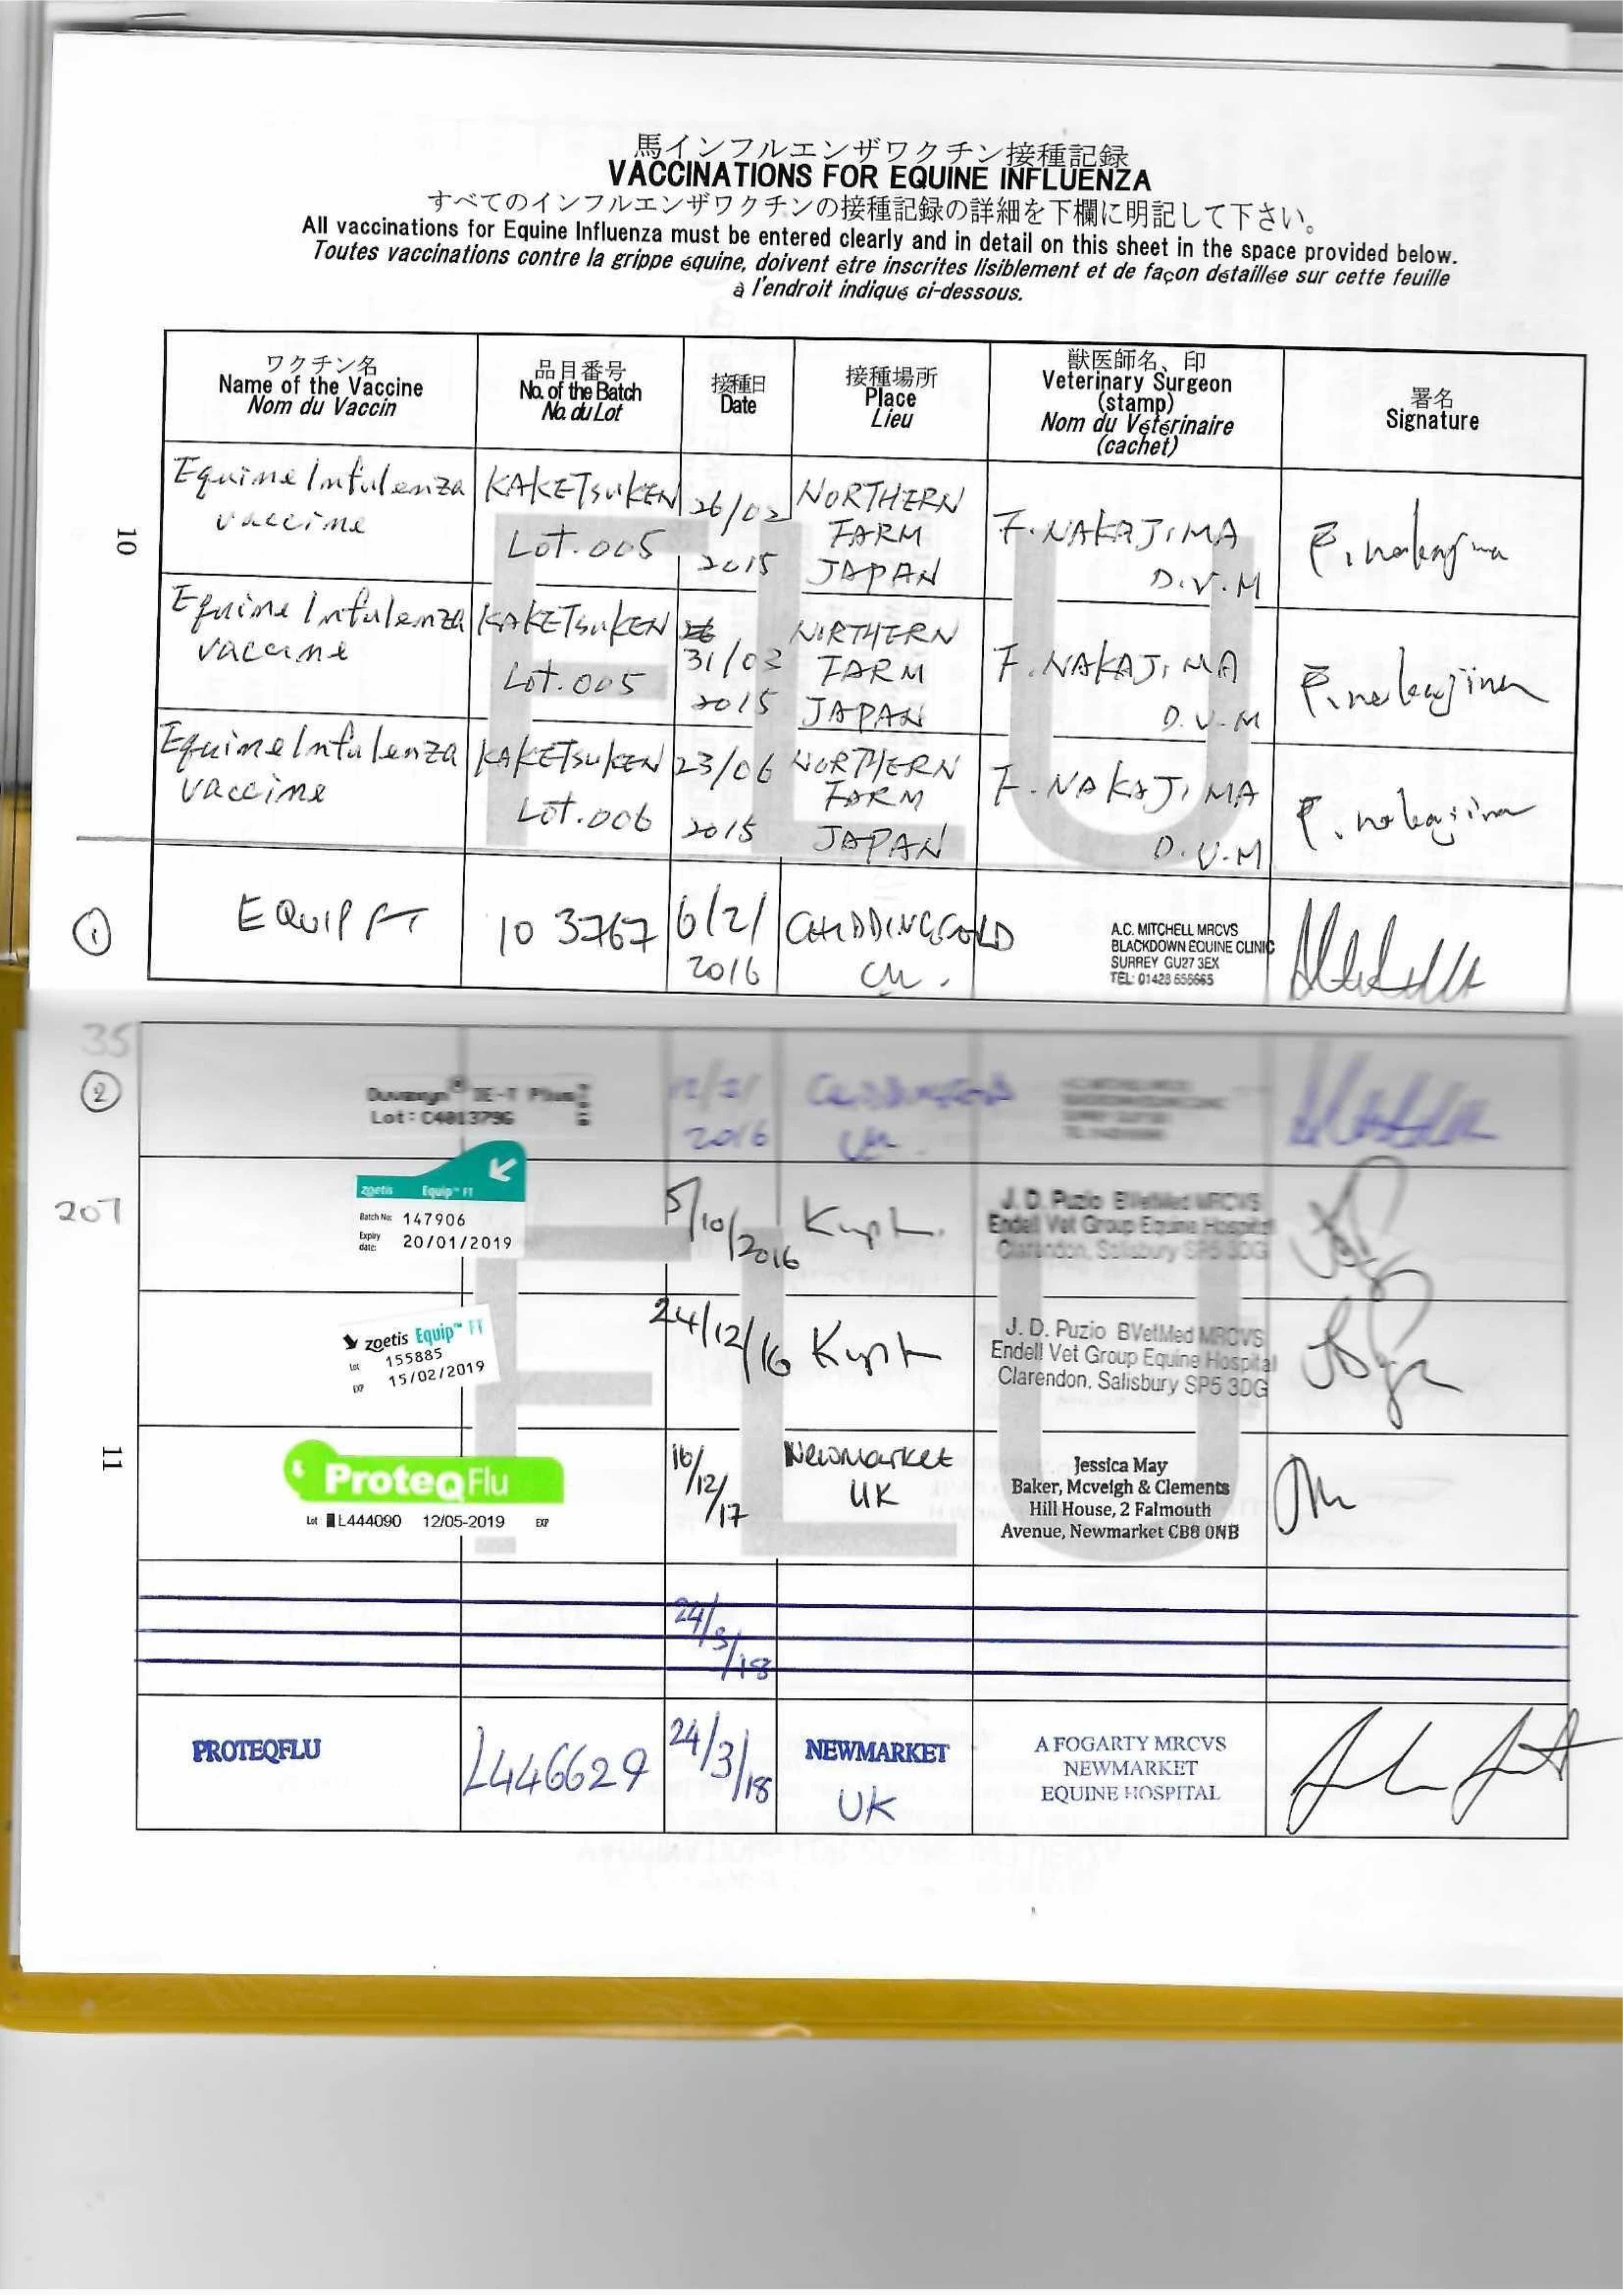 馬インフルエンザワクチン接種記録
VACCINATIONS FOR EQUINE INFLUENZA
すべてのインフルエンザワクチンの接種記録の詳細を下欄に明記して下さい。
All vaccinations for Equine Influenza must be entered clearly and in detail on this sheet in the space provided below.
Toutes vaccinations contre la grippe équine, doivent être inscrites lisiblement et de façon détaillée sur cette feuille
à l'endroit indiqué ci-dessous.
ワクチン名
Name of the Vaccine
Nom du Vaccin
品目番号
No. of the Batch
No. du Lot
接種日
Date
接種場所
Place
Lieu
獣医師名、印
Veterinary Surgeon
(stamp)
Nom du Vétérinaire
(cachet)
署名
Signature
10
FLU
Equine Infulenza
vaccine
KAKETSUKEN
Lot.005
26/02
2015
NORTHERN
FARM
JAPAN
F. NAKAJIMA
D.V.M
F. nakajima
Equine Infulenza
vaccine
KAKETSUKEN
Lot.005
31/03
2015
NORTHERN
FARM
JAPAN
F. NAKAJIMA
D.V.M
F. nakajima
Equine Infulenza
vaccine
KAKETSUKEN
Lot.006
23/06
2015
NORTHERN
FARM
JAPAN
F. NAKAJIMA
D.V.M
F. nakajima
1
EQUIP FT
10 3767
6/2/
2016
CHIDDINGFOLD
UK.
A.C. MITCHELL MRCVS
BLACKDOWN EQUINE CLINIC
SURREY GU27 3EX
TEL: 01428 656665
35
2
Duvaxyn® IE-T Plus
Lot: C401379G
12/3/
2016
CHIDDINGFOLD
UK.
207
zoetis Equip™ FT
Batch No: 147906
Expiry date: 20/01/2019
5/10/2016
J. D. Puzio BVetMed MRCVS
Endell Vet Group Equine Hospital
Clarendon, Salisbury SP5 3DG
zoetis Equip™ FT
Lot 155885
EXP 15/02/2019
24/12/16
J. D. Puzio BVetMed MRCVS
Endell Vet Group Equine Hospital
Clarendon, Salisbury SP5 3DG
11
FLU
ProteqFlu
Lot L444090 12/05-2019 EXP
16/12/17
Newmarket
UK
Jessica May
Baker, Mcveigh & Clements
Hill House, 2 Falmouth
Avenue, Newmarket CB8 0NB
24/3/18
PROTEQFLU
L446629
24/3/18
NEWMARKET
UK
A FOGARTY MRCVS
NEWMARKET
EQUINE HOSPITAL